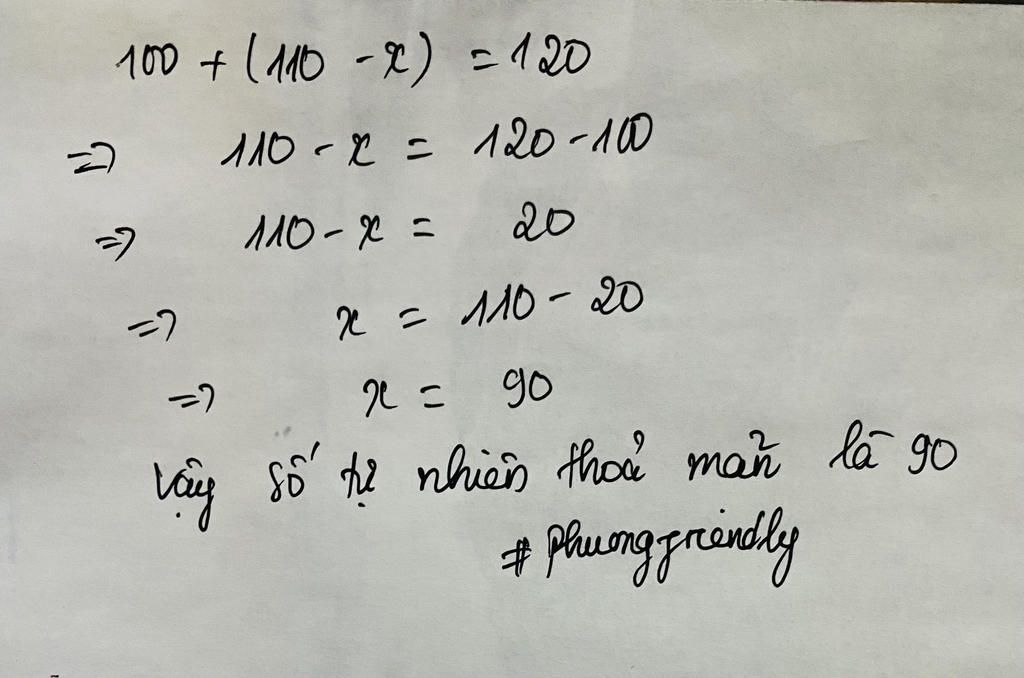 100 + (110 - x) = 120
=> 110 - x = 120 - 100
=> 110 - x = 20
=> x = 110 - 20
=> x = 90
Vậy số tự nhiên thoả mãn là 90
# phuongfriendly